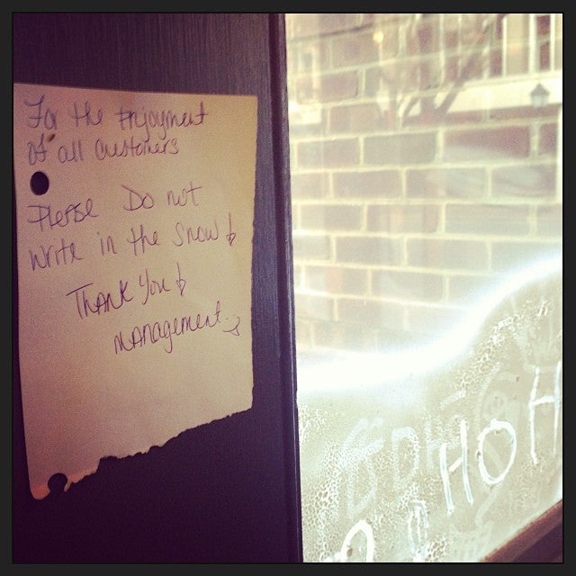 For the Enjoyment
of all customers
Please Do not
write in the snow!
Thank you!
Management
HOH